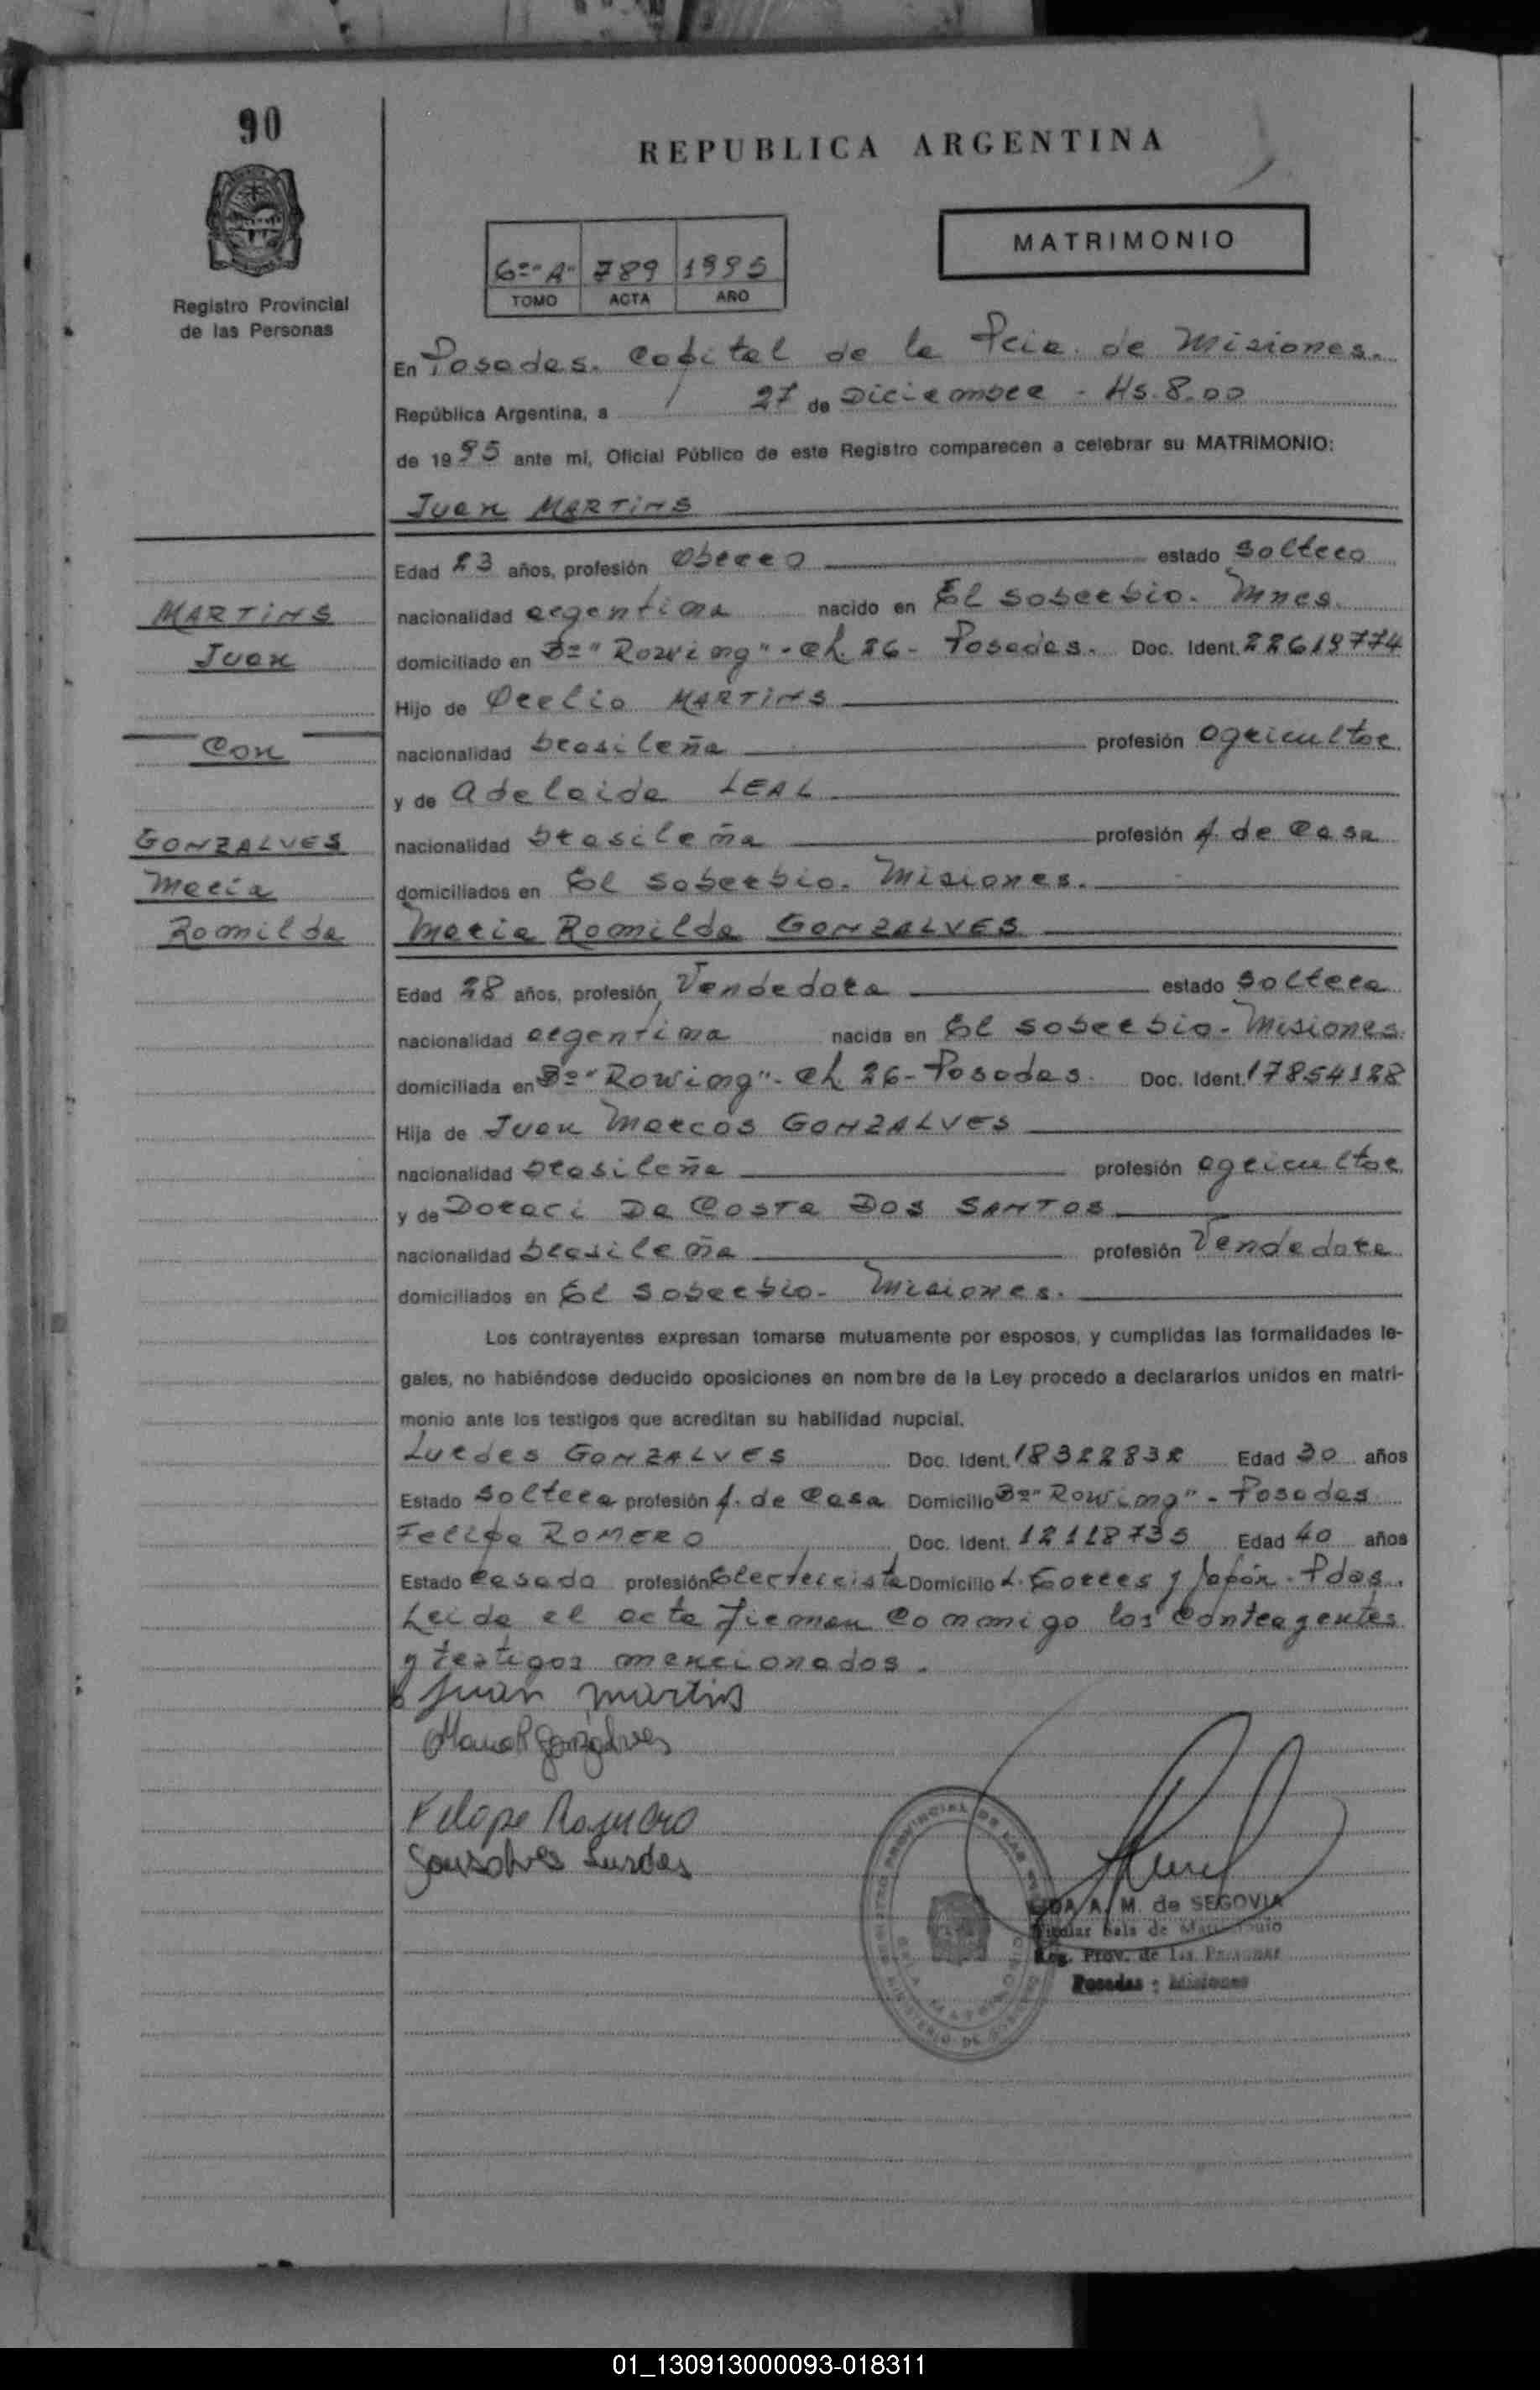 90
REPUBLICA ARGENTINA
MATRIMONIO
6º "A" 789 1995
TOMO ACTA AÑO
Registro Provincial
de las Personas
En Posadas. Capital de la Pcia. de Misiones.
República Argentina, a 27 de Diciembre - Hs. 8.00
de 1995 ante mi, Oficial Público de este Registro comparecen a celebrar su MATRIMONIO:
Juan MARTINS
Edad 23 años, profesión Obrero estado Soltero
MARTINS
Juan
Con
GONZALVES
Maria
Romilda
nacionalidad argentina nacido en El Soberbio. Mnes.
domiciliado en Bº "Rowing" - Ch. 26 - Posadas. Doc. Ident. 22619774
Hijo de Orelio MARTINS
nacionalidad brasileña profesión agricultor
y de Adelaida LEAL
nacionalidad brasileña profesión A. de Casa
domiciliados en El Soberbio. Misiones.
Maria Romilda GONZALVES
Edad 28 años, profesión Vendedora estado Soltera
nacionalidad argentina nacida en El Soberbio - Misiones.
domiciliada en Bº "Rowing" - Ch 26 - Posadas. Doc. Ident. 17854128
Hija de Juan Marcos GONZALVES
nacionalidad brasileña profesión agricultor
y de Doraci Da Costa Dos SANTOS
nacionalidad brasileña profesión Vendedora
domiciliados en El Soberbio - Misiones.
Los contrayentes expresan tomarse mutuamente por esposos, y cumplidas las formalidades le-
gales, no habiéndose deducido oposiciones en nombre de la Ley procedo a declararlos unidos en matri-
monio ante los testigos que acreditan su habilidad nupcial.
Lurdes GONZALVES Doc. Ident. 18322832 Edad 30 años
Estado Soltera profesión A. de Casa Domicilio Bº "Rowing" - Posadas
Felipe ROMERO Doc. Ident. 12118735 Edad 40 años
Estado Casado profesión Electricista Domicilio L. Torres y Japón - Pdas.
Leida el acta firman conmigo los contrayentes
y testigos mencionados.
Juan Martins
Maria R Gonzalves
Felipe Romero
Gonsalves Lurdes
A. M. de SEGOVIA
Titular Sala de Matrimonio
Reg. Prov. de las Personas
Posadas - Misiones
01_130913000093-018311